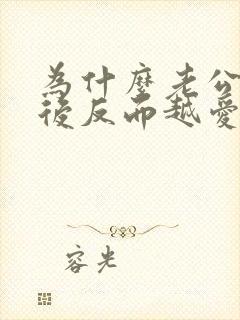 為什麼老公
後反而越愛
容光